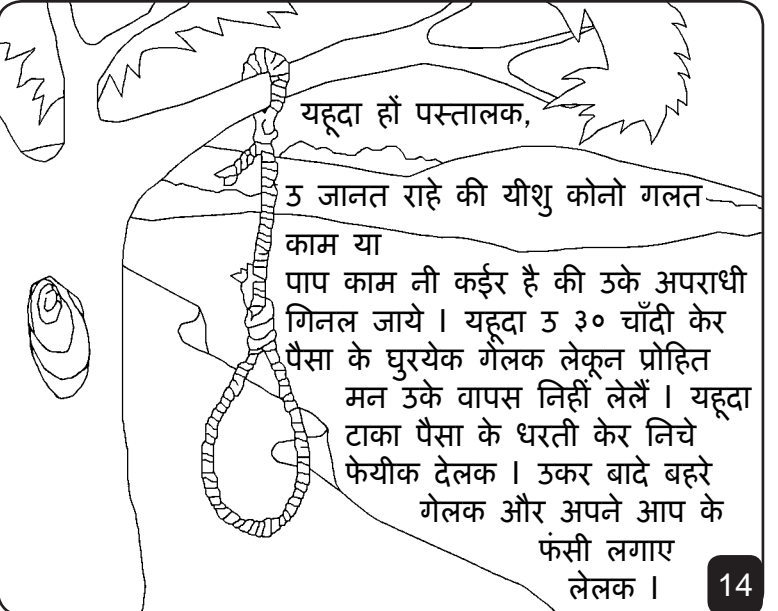 यहूदा हों पस्तालक,
उ जानत राहे की यीशु कोनो गलत
काम या
पाप काम नी कईर है की उके अपराधी
गिनल जाये I यहूदा उ ३० चाँदी केर
पैसा के घुरयेक गेलक लेकून प्रोहित
मन उके वापस निहीं लेलैं I यहूदा
टाका पैसा के धरती केर निचे
फेयीक देलक I उकर बादे बहरे
गेलक और अपने आप के
फंसी लगाए
लेलक I
14